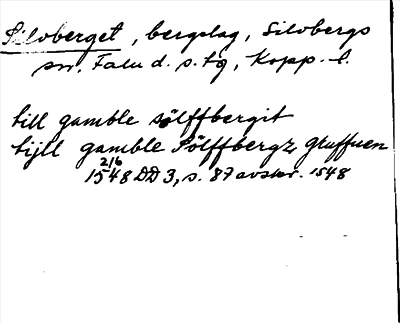 Silvberget, bergslag, Silvbergs
sn, Falu d. s. tg, Kopp. l.
till gamble sölffbergit
tijll gamble Sölffbergz gruffuen
2/6
1548 DD 3, s. 87 avskr. 1548